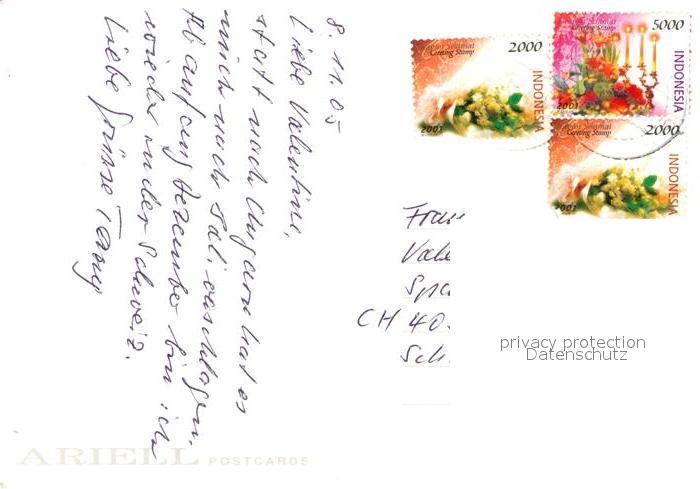 8.11.05
Liebe Valentine,
statt nach Ungarn hat es
mich nach Bali verschlagen.
Ab anfangs Dezember bin ich
wieder in der Schweiz.
Liebe Grüsse
Selamat
Greeting Stamp
2000
INDONESIA
2001
Selamat
Greeting Stamp
5000
INDONESIA
2001
Selamat
Greeting Stamp
2000
INDONESIA
2001
Frau
Vale
Spa
CH 40
Sch
privacy protection
Datenschutz
ARIELL POSTCARDS